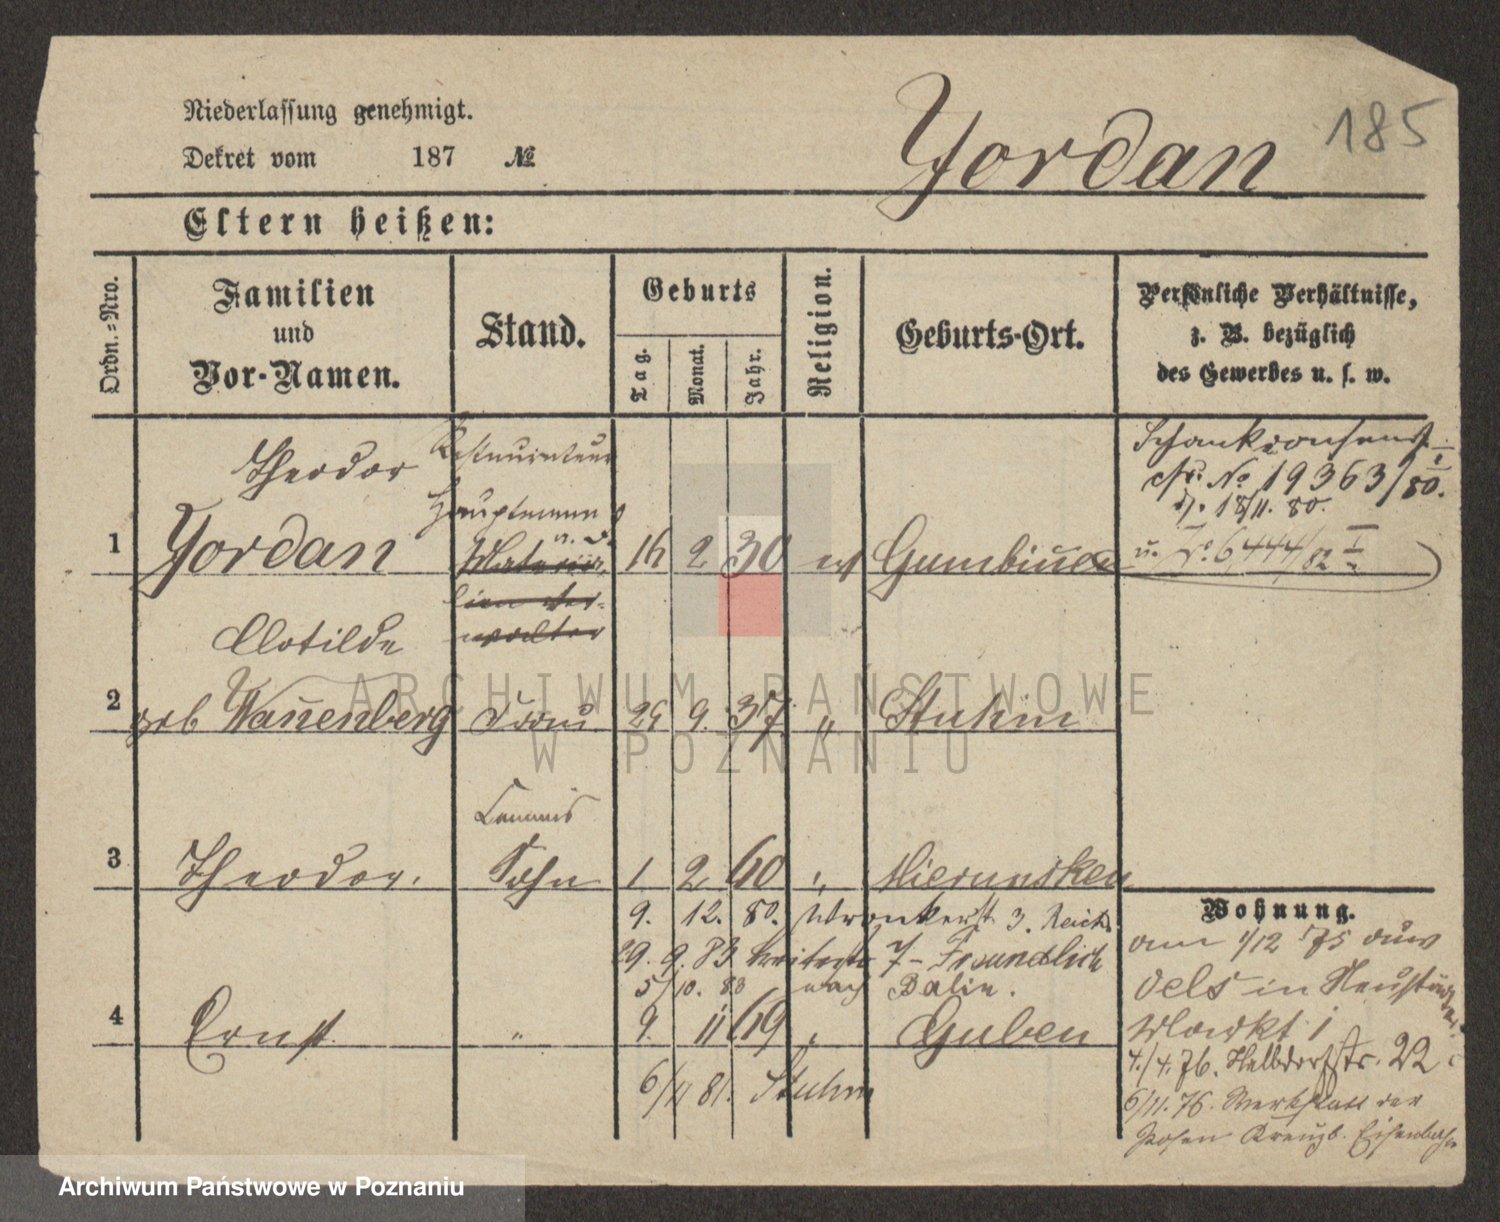 Niederlassung genehmigt.
Dekret vom 187 №
Yordan 185
Eltern heißen:
Ordn.=Nro.
Familien
und
Vor-Namen.
Stand.
Geburts
Tag.
Monat.
Jahr.
Religion.
Geburts-Ort.
Persönliche Verhältnisse,
z. B. bezüglich
des Gewerbes u. s. w.
Theodor Restaurateur
Hauptmann
1 Yordan Materia= 16 2 30 ev Gumbinnen
lien Ver=
walter
Schankconsens
No 19363/80.
18/11. 80.
u. No 6444/82 I
Clotilde
2 geb Wannenberg Frau 9. 37 " Stuhm
Commis
3 Theodor. Sohn 1 2 60 " Mierunsken
9. 12. 80. Wronkerst 3. Reich
29. 9. 83 7 - Freundlich
5/10. 83 nach
4 Ernst " 9. 11 69 " Guben
6/11 81. Stuhm
Wohnung.
am 1/12 75 aus
Oels in Neustädt.
Markt 1
4./4. 76. Halbdorfstr. 22
6/11. 76. Werkstatt der
Posen Kreuzb. Eisenbahn
ARCHIWUM PAŃSTWOWE
W POZNANIU
Archiwum Państwowe w Poznaniu